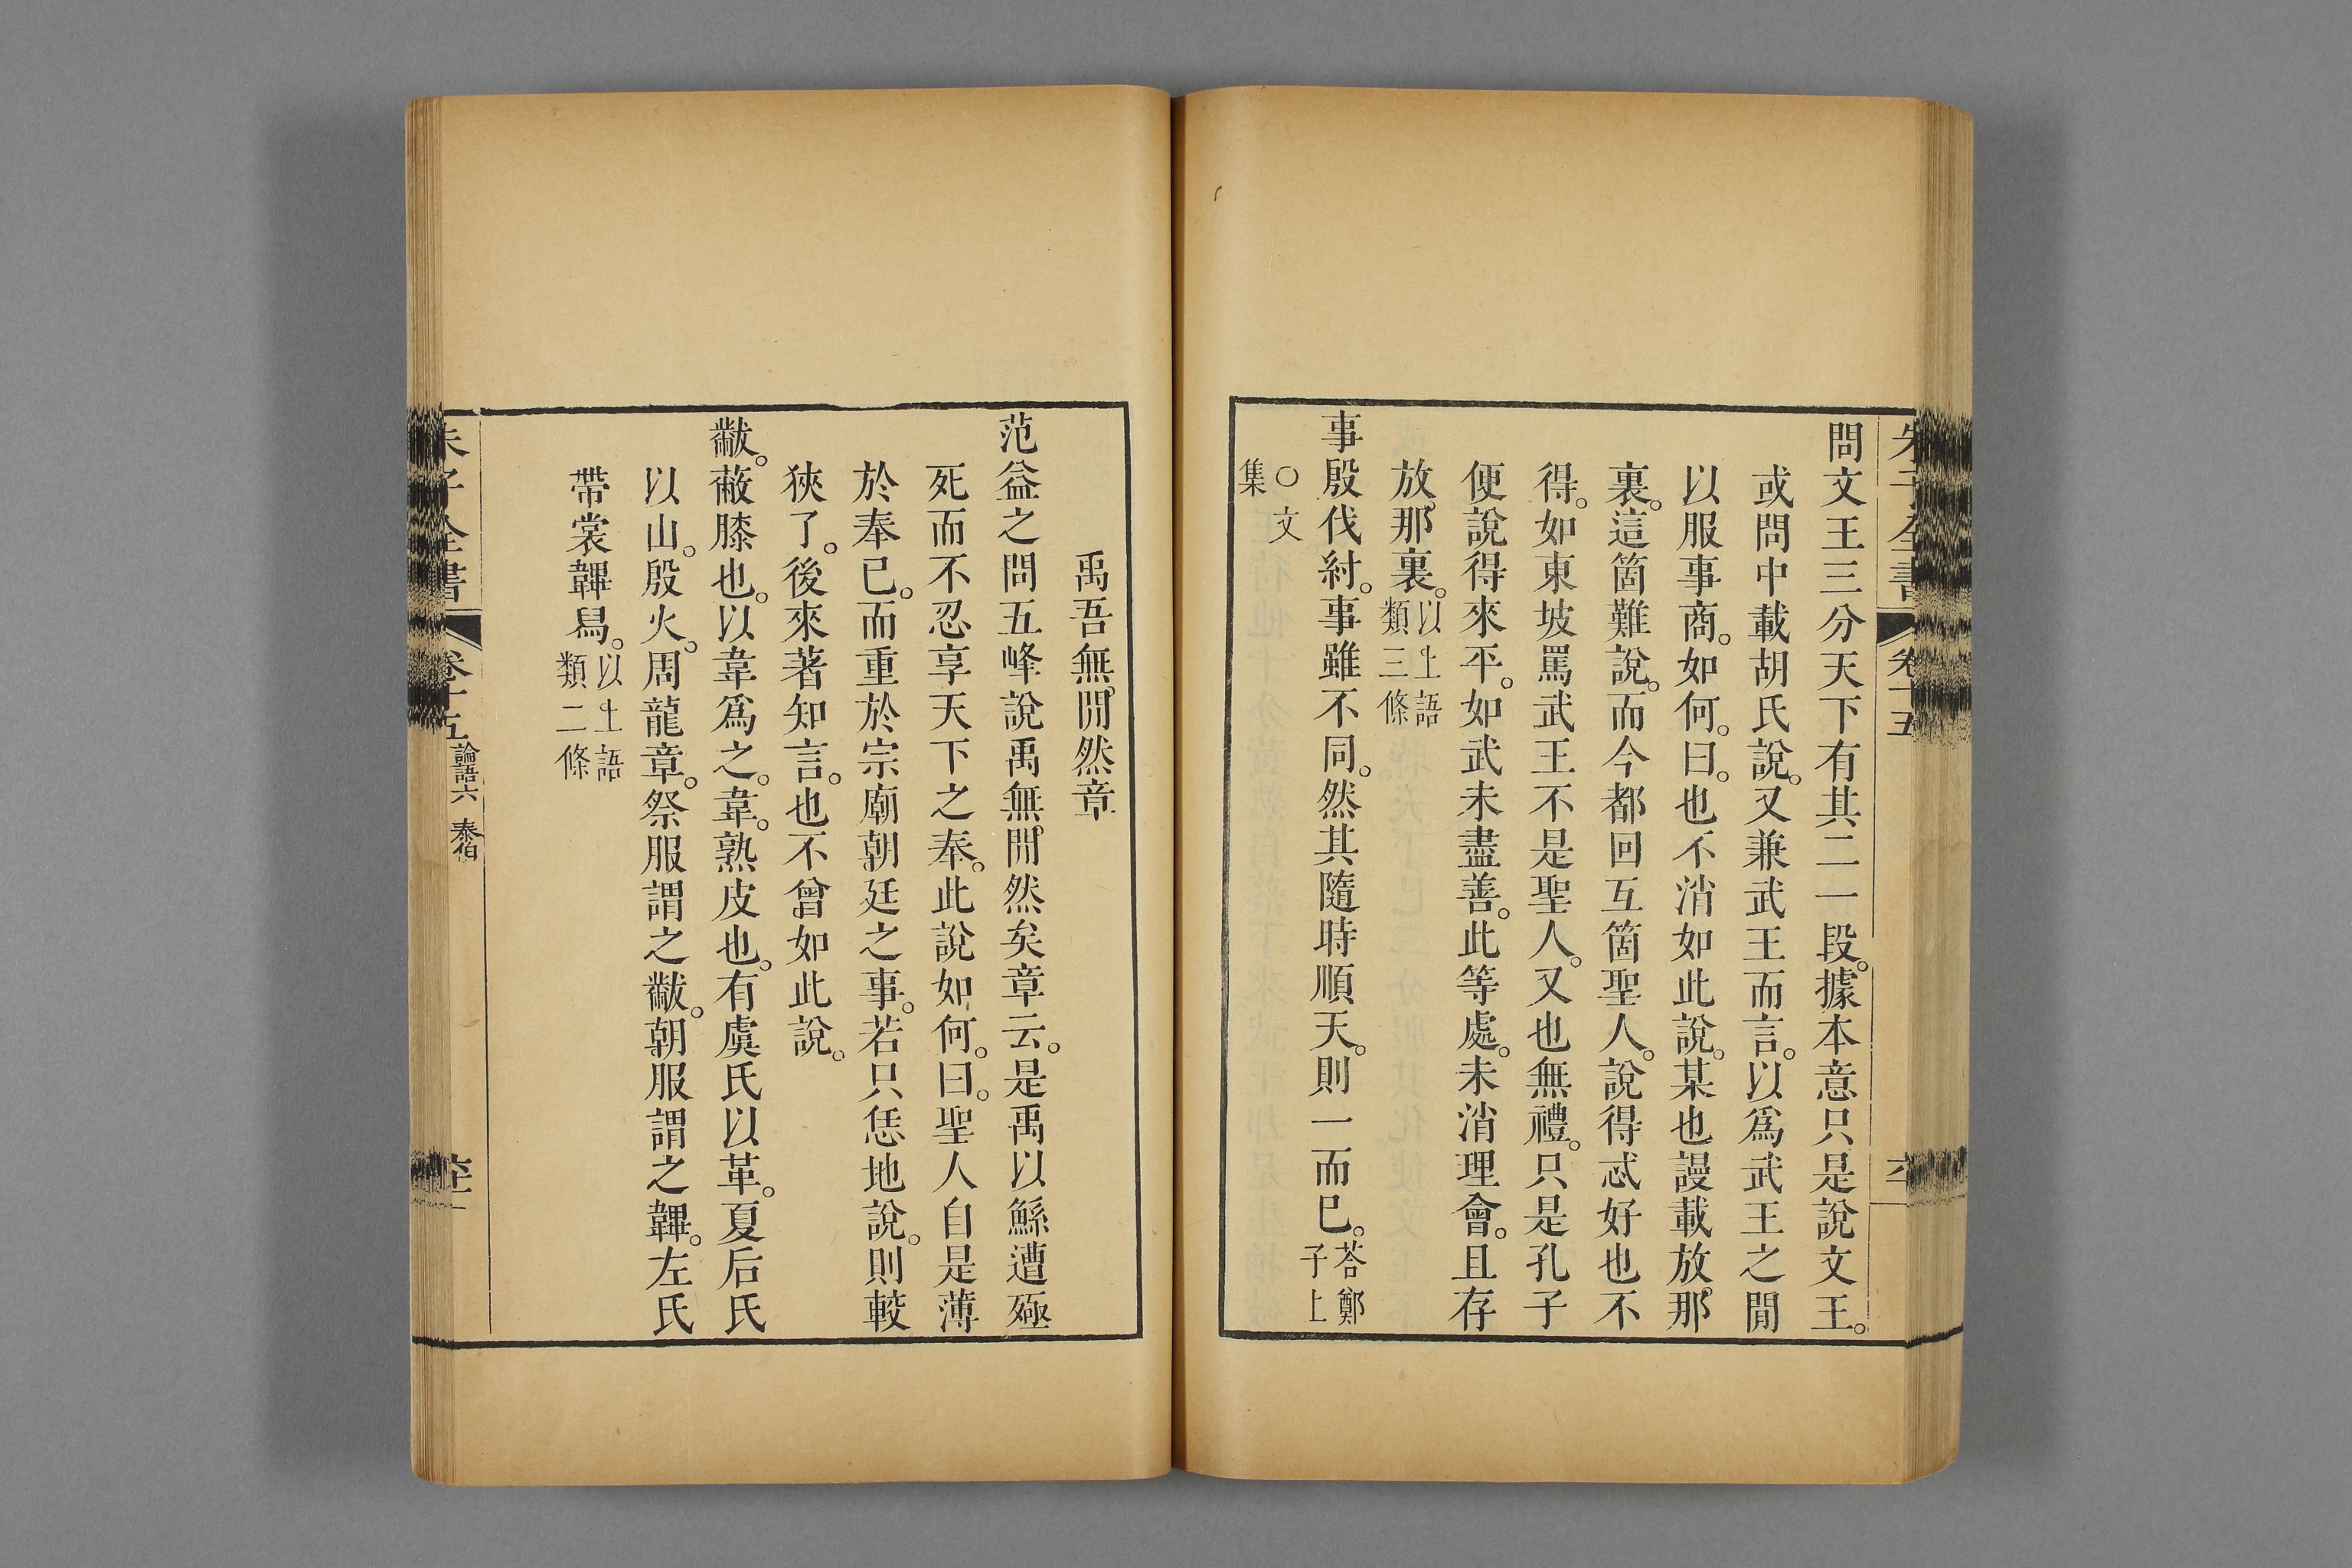 問文王三分天下有其二一段。據本意只是說文王。
或問中載胡氏說。又兼武王而言。以爲武王之閒
以服事商。如何。曰。也不消如此說。某也謾載放那
裏。這箇難說。而今都回互箇聖人。說得忒好也不
得。如東坡罵武王不是聖人。又也無禮。只是孔子
便說得來平。如武未盡善。此等處。未消理會。且存
放那裏。以上語
類三條
事殷伐紂。事雖不同。然其隨時順天。則一而已。荅鄭
子上
○文
集
禹吾無閒然章
范益之問五峰說禹無閒然矣章云。是禹以鯀遭殛
死而不忍享天下之奉。此說如何。曰。聖人自是薄
於奉己。而重於宗廟朝廷之事。若只恁地說。則較
狹了。後來著知言。也不曾如此說。
黻。蔽膝也。以韋爲之。韋。熟皮也。有虞氏以革。夏后氏
以山。殷火。周龍章。祭服謂之黻。朝服謂之韠。左氏
帶裳韠舄。以上語
類二條
朱子全書 卷十五 論語六 泰伯